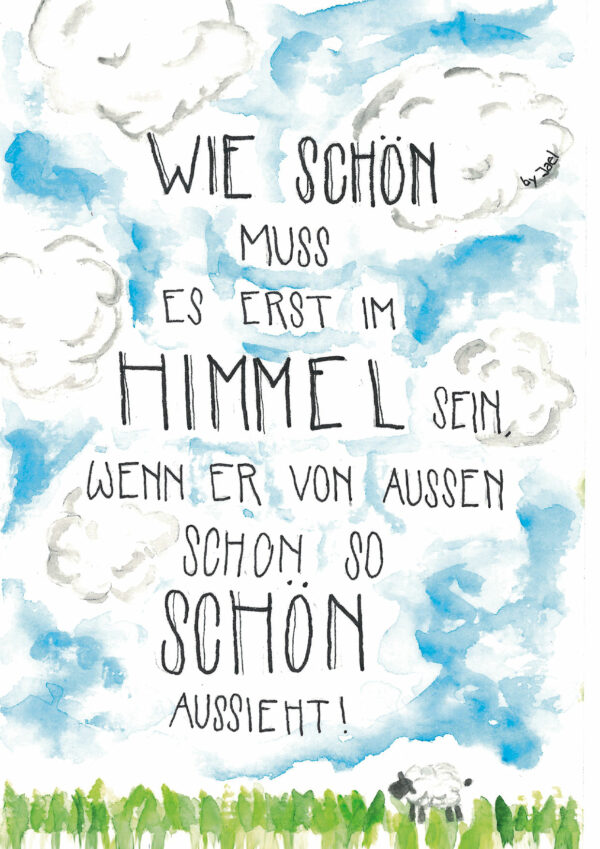 by Jael
WIE SCHÖN
MUSS
ES ERST IM
HIMMEL SEIN,
WENN ER VON AUSSEN
SCHON SO
SCHÖN
AUSSIEHT!